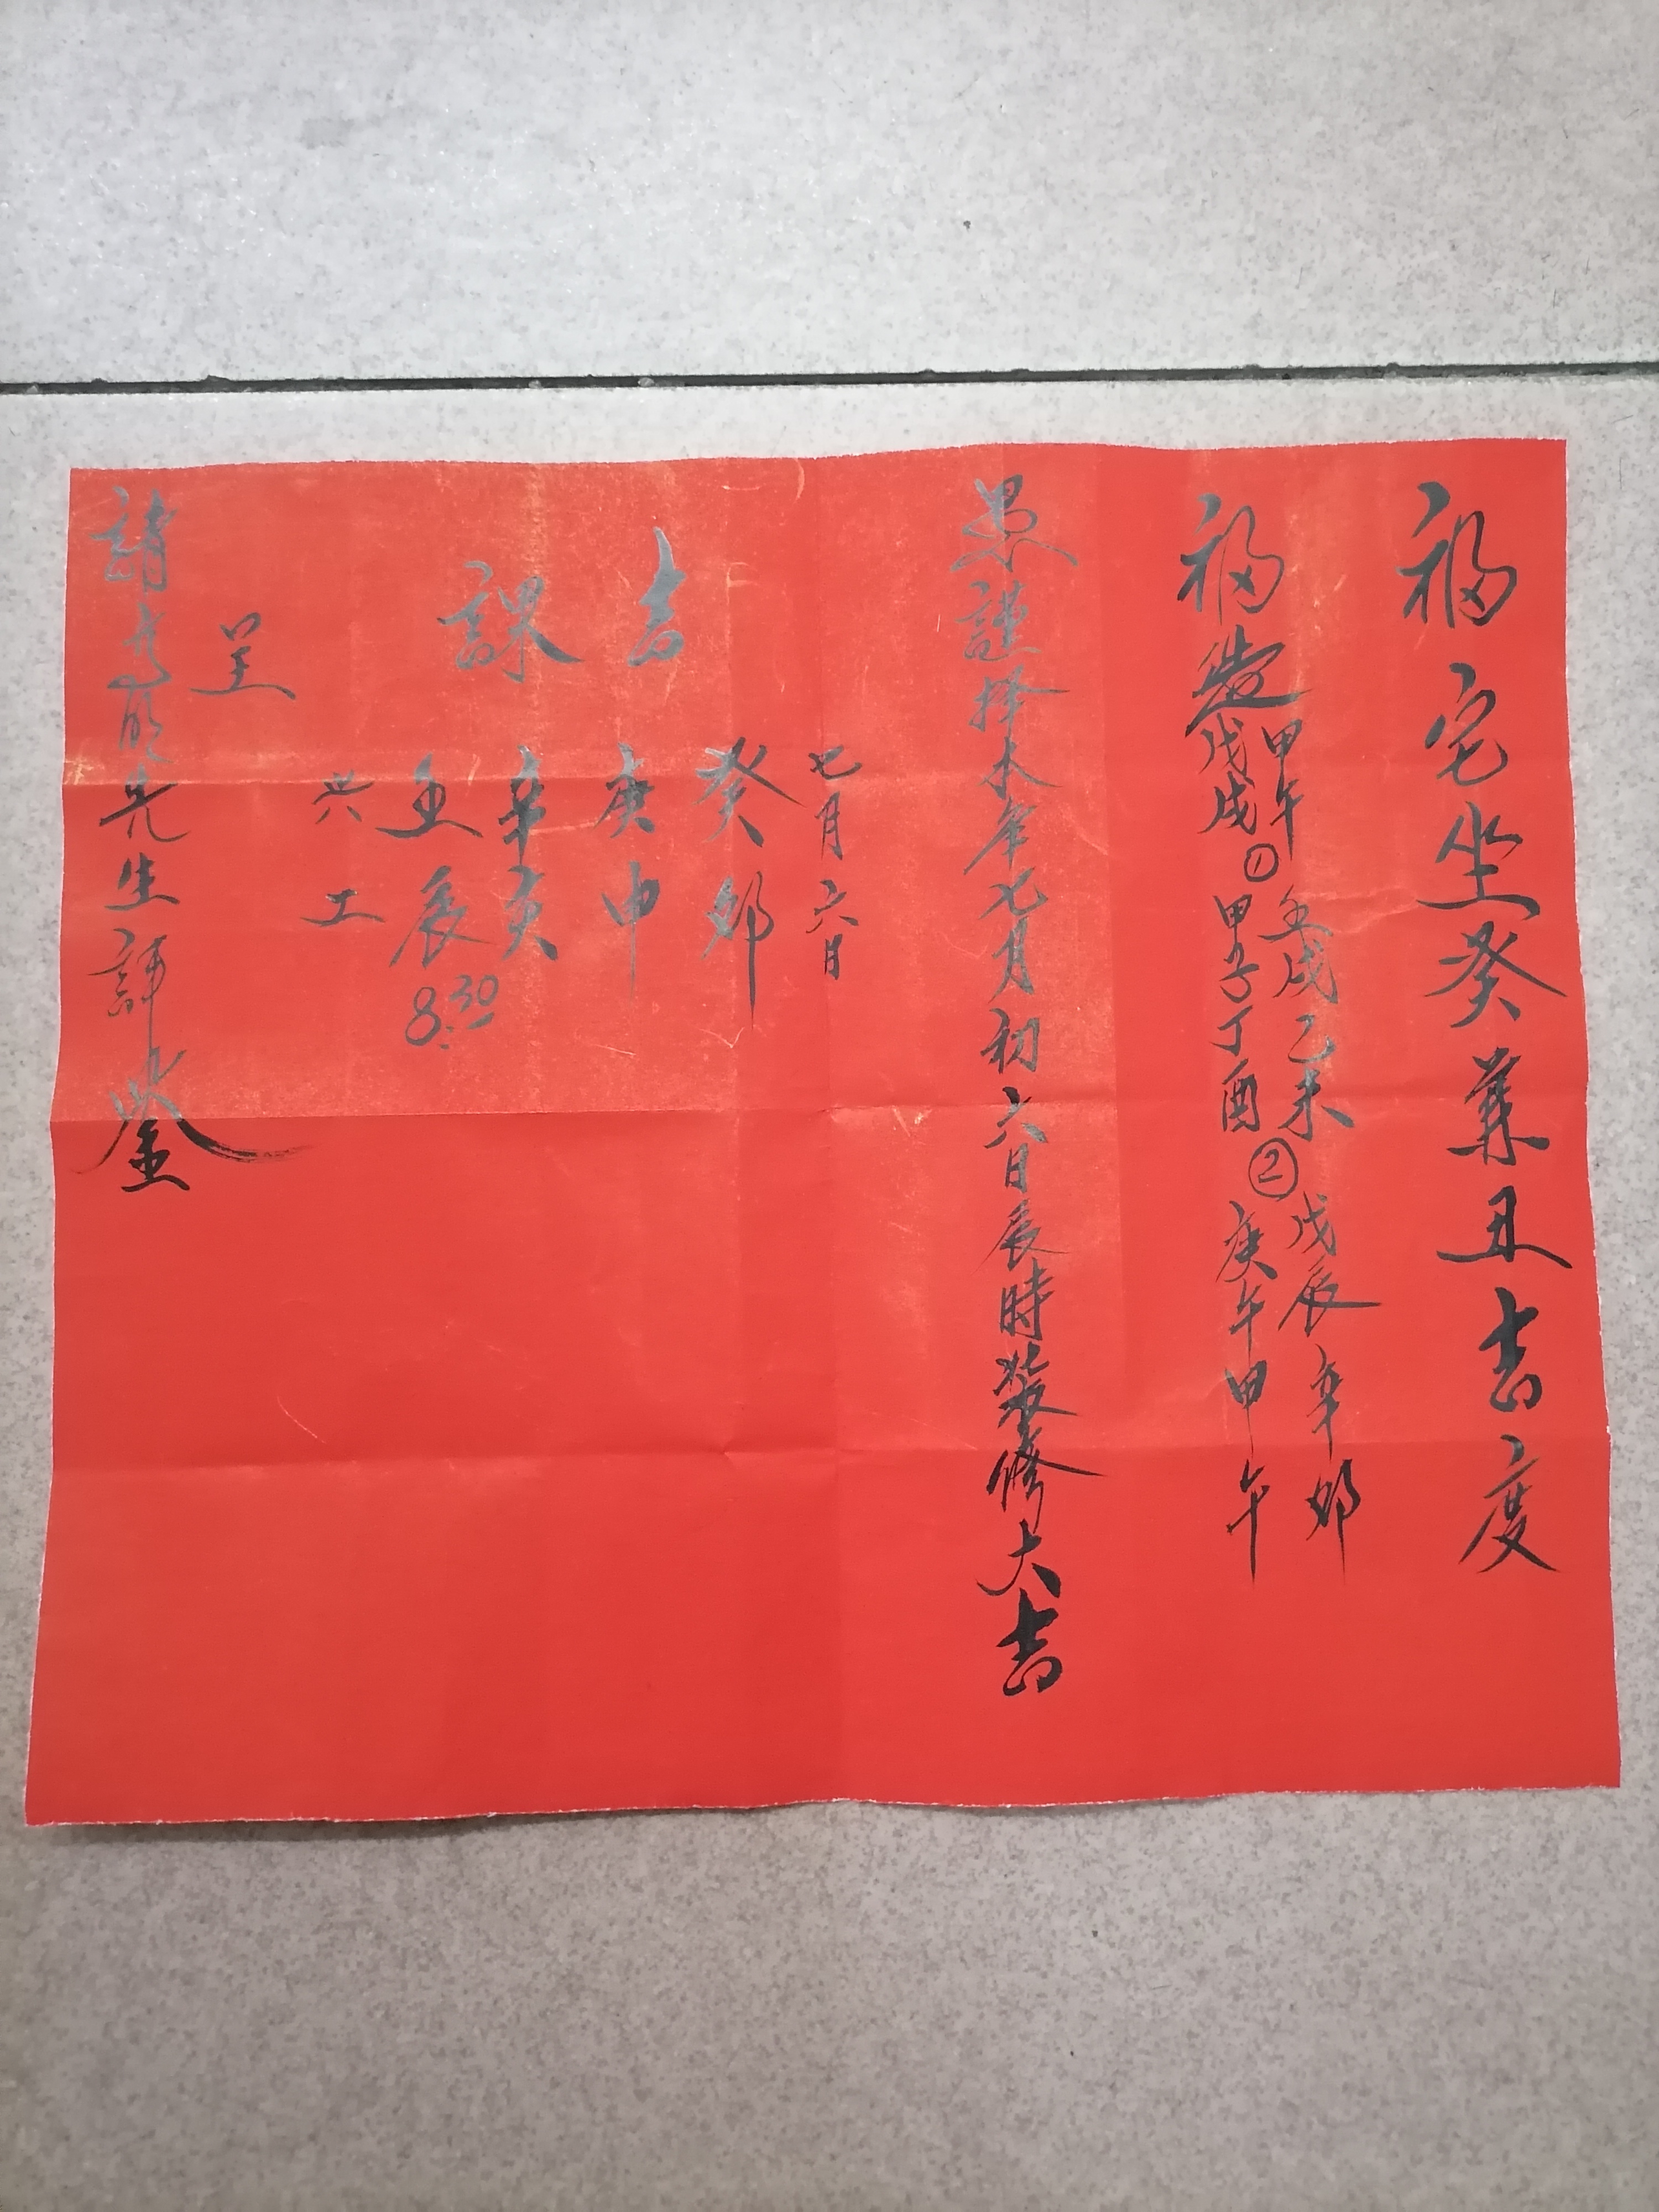 福宅坐癸兼丑吉度
福造
甲午 壬戌 乙未 戊辰 辛卯
戊戌 ① 甲子 丁酉 ② 庚午 甲午
愚謹择本年七月初六日辰時裝修大吉
七月六日
吉課
癸卯
庚申
辛亥
壬辰
8:30
兴工
呈
請 先生評鉴